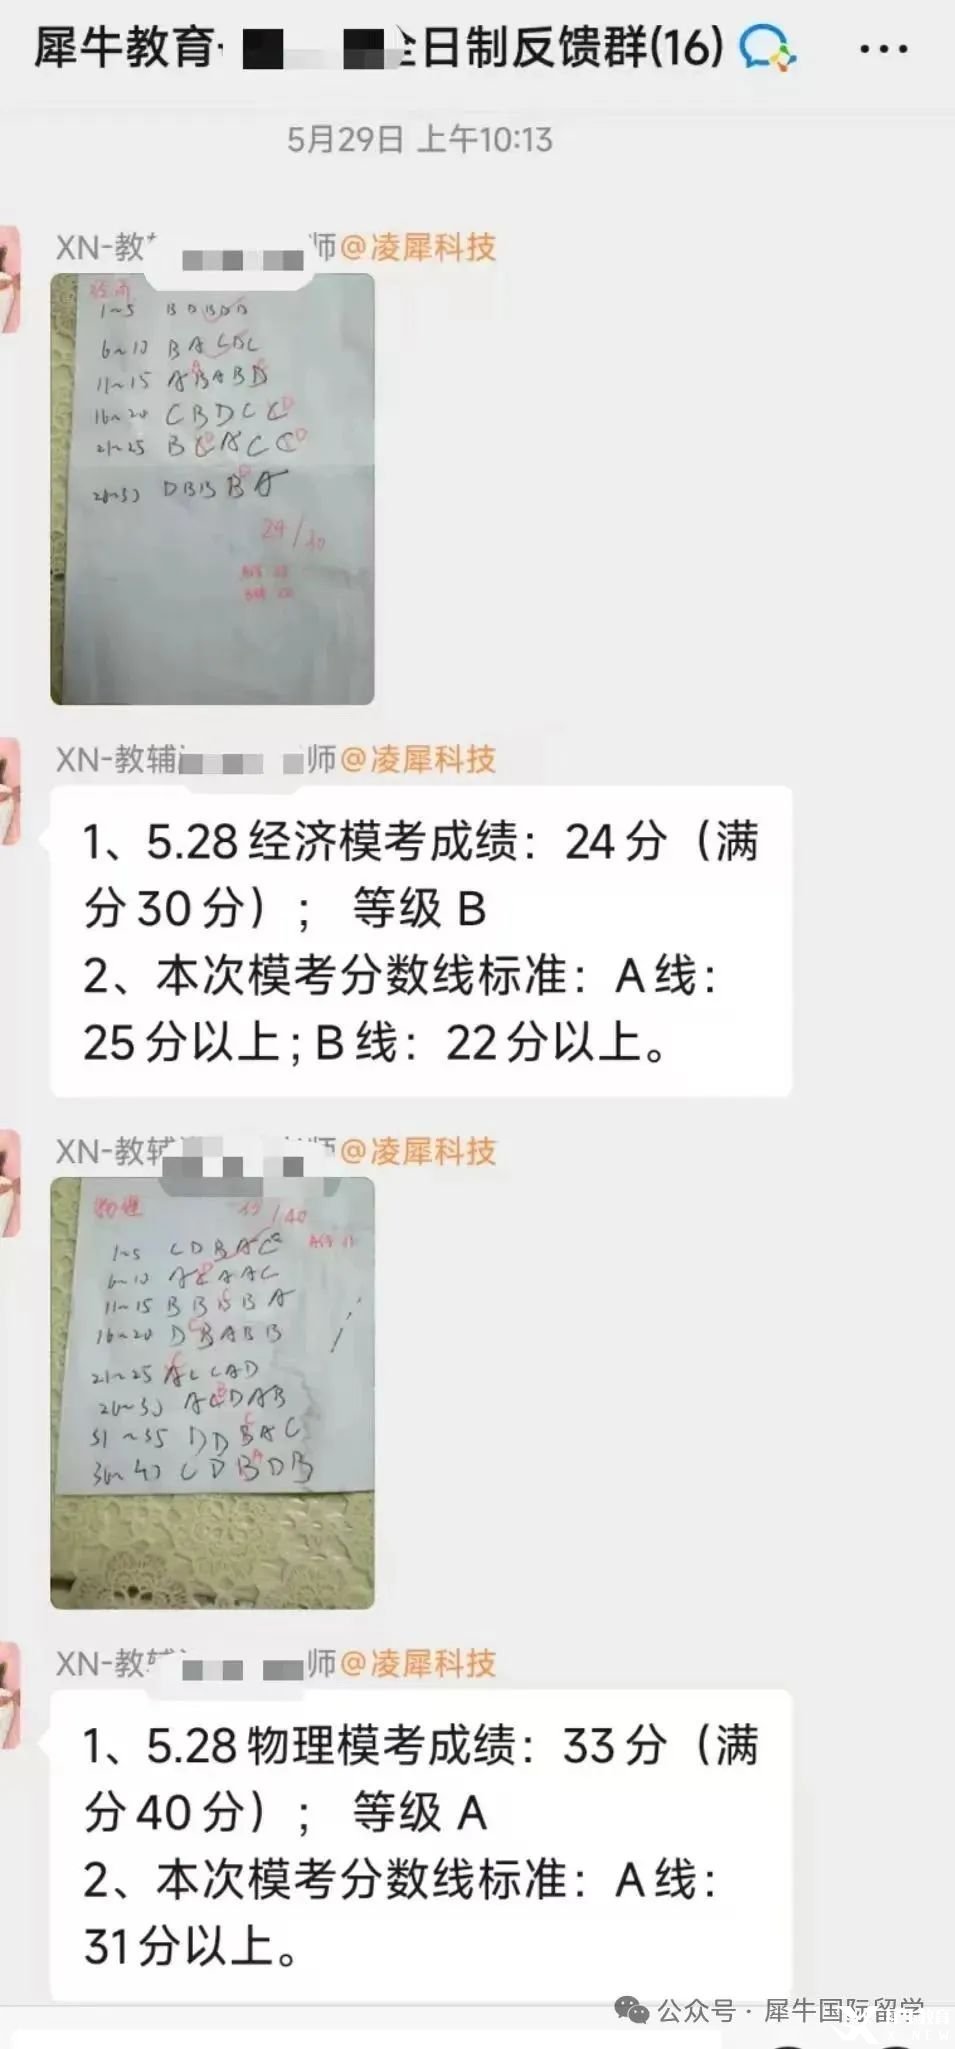 犀牛教育·
全日制反馈群(16)
5月29日 上午10:13
XN-教 师@凌犀科技
经济
1~5 B D B D D
6~10 B A C D C
11~15 A B A B D
16~20 C B D C C D
21~25 B C A C C D
26~30 D B B B A
24/30
XN-教辅 师@凌犀科技
1、5.28经济模考成绩：24分（满
分30分）； 等级 B
2、本次模考分数线标准：A线：
25分以上；B线：22分以上。
XN-教辅 师@凌犀科技
物理 33/40
1~5 C D B A C
6~10 A C A A C
11~15 B B B B A
16~20 D B A B B
21~25 A C C A D
26~30 A C D A B
31~35 D D B A C
36~40 C D B D B
XN-教 师@凌犀科技
1、5.28物理模考成绩：33分（满
分40分）； 等级 A
2、本次模考分数线标准：A线：
31分以上。
公众号·犀牛国际留学
犀牛教育
X NEW